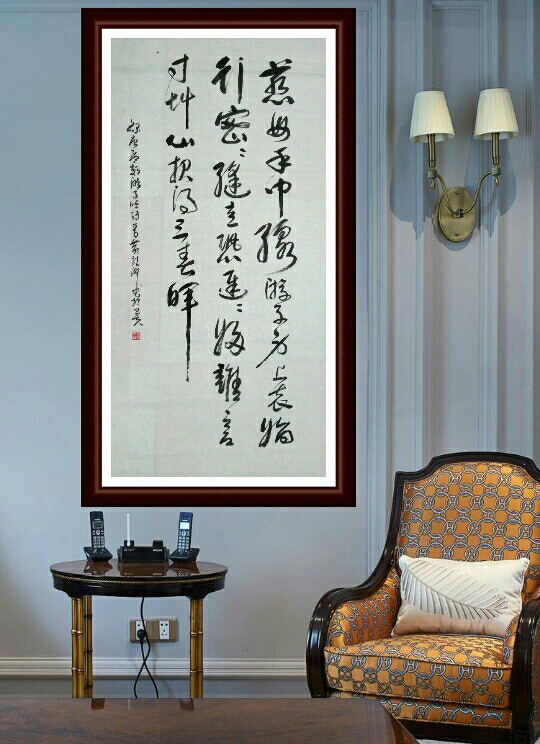 慈母手中線游子身上衣臨
行密〻縫意恐遲〻歸誰言
寸艸心报得三春暉
録唐孟郊游子吟